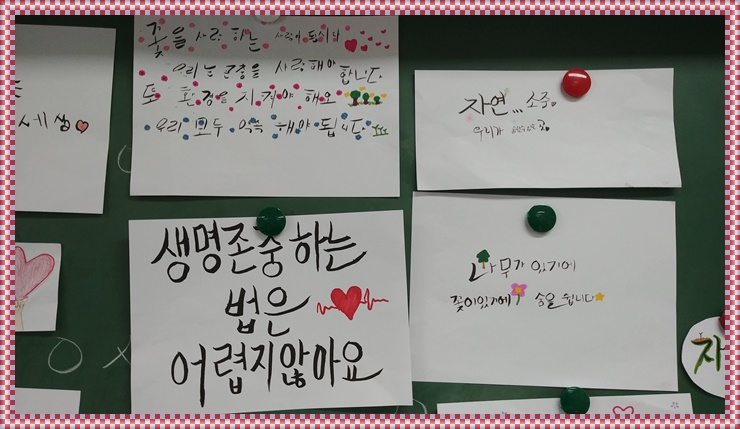 세상
꽃을 사랑 하는 사람이 됩시다
우리는 곤충을 사랑해야 합니다
또 환경을 지켜야 해요
우리 모두 약속 해야 됩니다
자연... 소중
우리가
생명존중하는
법은
어렵지않아요
나무가 있기에
꽃이있기에 숨을 쉽니다
자